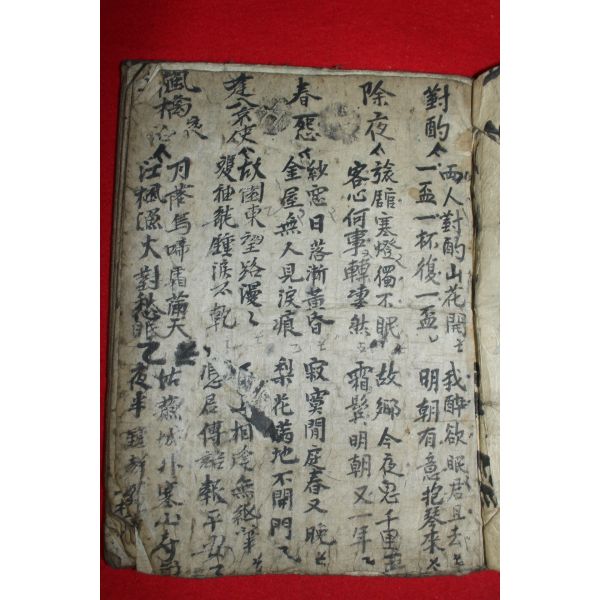 對酌
兩人對酌山花開 我醉欲眠君且去
一盃一杯復一盃 明朝有意抱琴來
除夜
旅館寒燈獨不眠 故鄉今夜思千里
客心何事轉凄然 霜鬂明朝又一年
春怨
紗窓日落漸黃昏 寂寞閒庭春又晚
金屋無人見淚痕 梨花滿地不開門
逢入京使
故園東望路漫〻 上相逢無紙筆
雙袖龍鍾淚不乾 憑君傳語報平安
楓橋
月落烏啼霜滿天 姑蘇城外寒山寺
江楓漁火對愁眠 夜半鍾聲